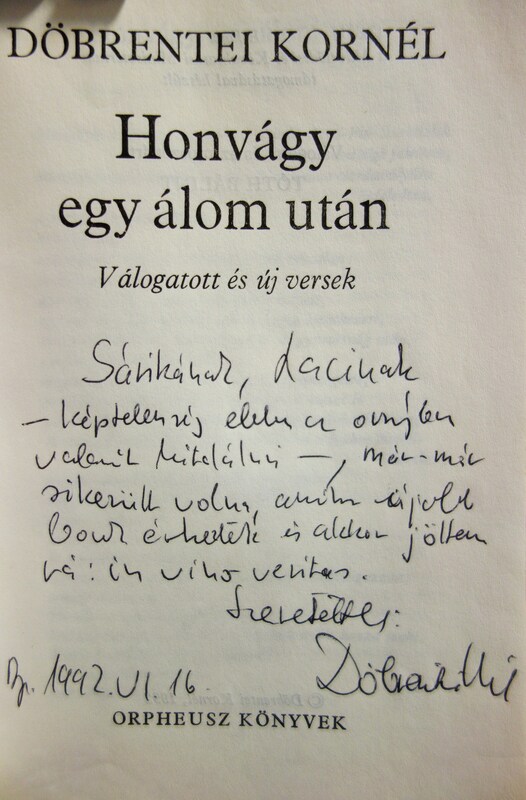 DÖBRENTEI KORNÉL
Honvágy
egy álom után
Válogatott és új versek
Sárikának, Lacinak
– képtelenség ebben a
valamit kitalálni –, már-már
sikerült volna, amikor újabb
érkeztek és akkor jöttem
rá: in vino veritas.
Szeretettel:
Bp. 1992. VI. 16.
ORPHEUSZ KÖNYVEK